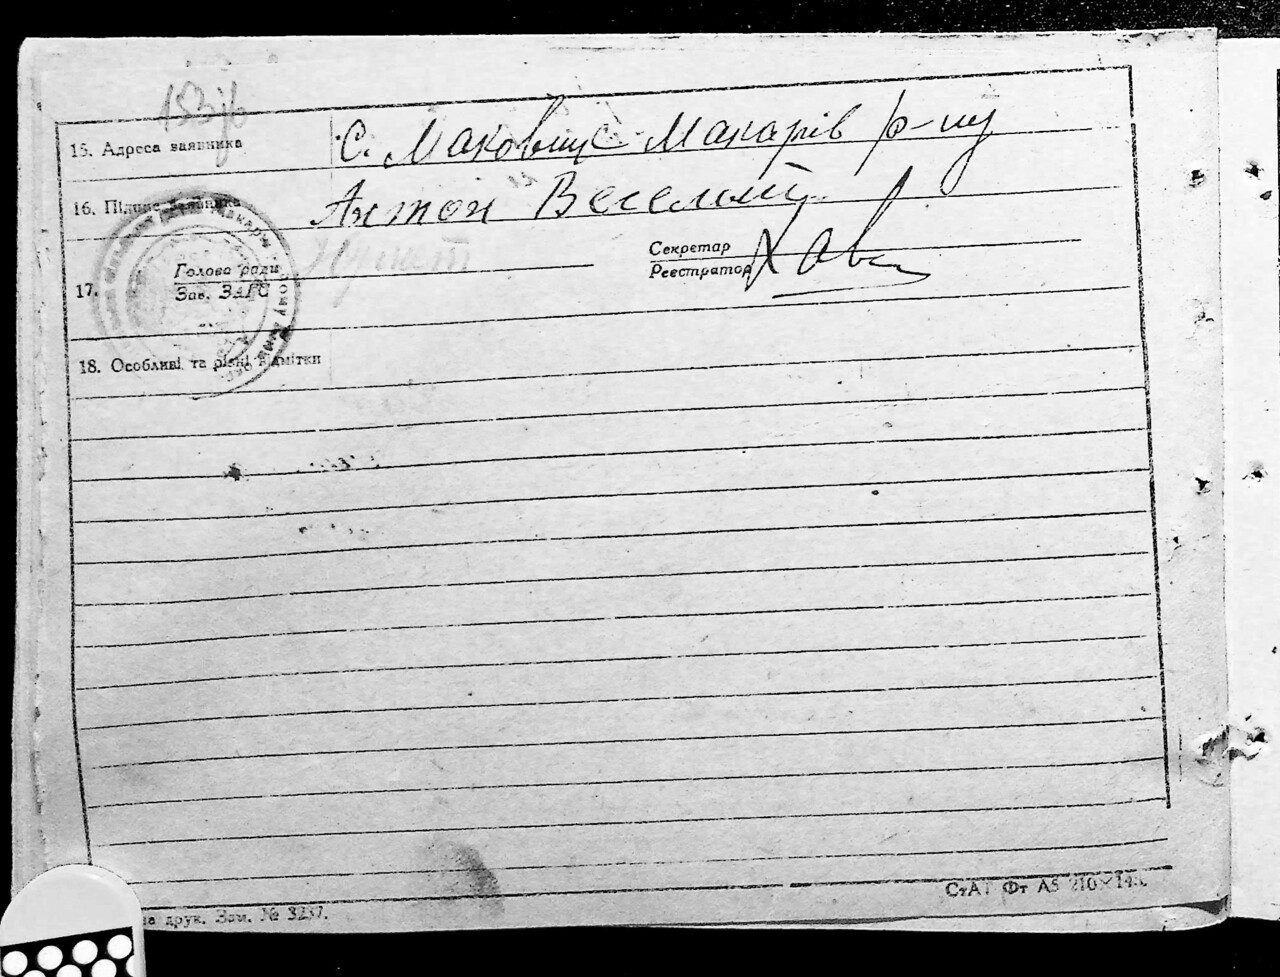 15. Адреса заявника с. Маковище Макарів р-ну
16. Підпис заявника Антон Веселий
Секретар
Голова ради
Реєстратор
17.
Зав. ЗАГС
18. Особливі та різні відмітки
СтАТ Фт А5 210×148.
друк. Зам. № 3237.